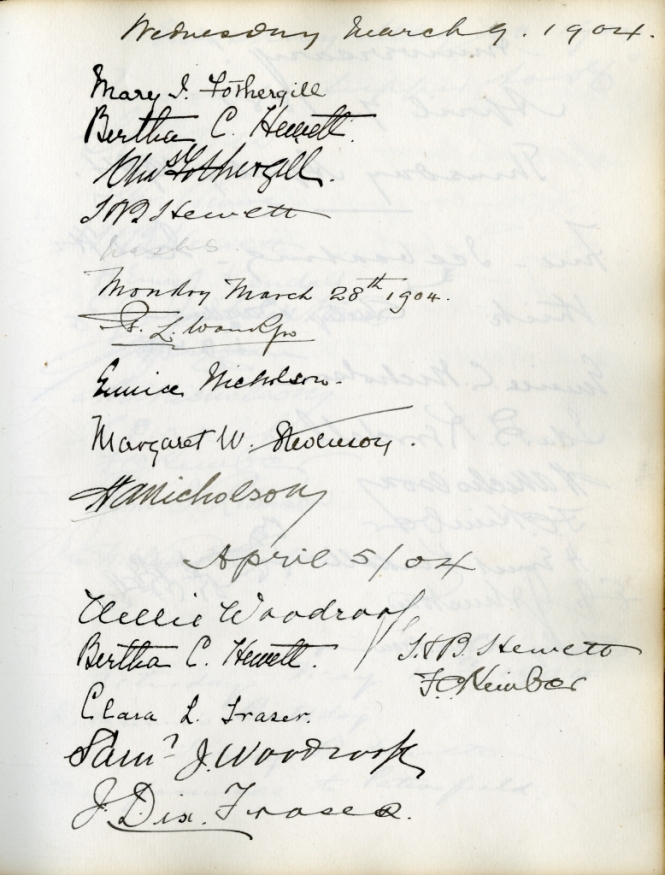 Wednesday March 9. 1904.
Mary I. Fothergill
Bertha C. Hewett.
Fothergill.
Hewett
Monday March 28th 1904.
Eunice Nicholson.
Margaret W. Stevenson.
Nicholson
April 5/04
Nellie Woodroof
Bertha C. Hewett.
Hewett
Clara L. Fraser.
Saml J. Woodroof
J. Dix. Fraser.